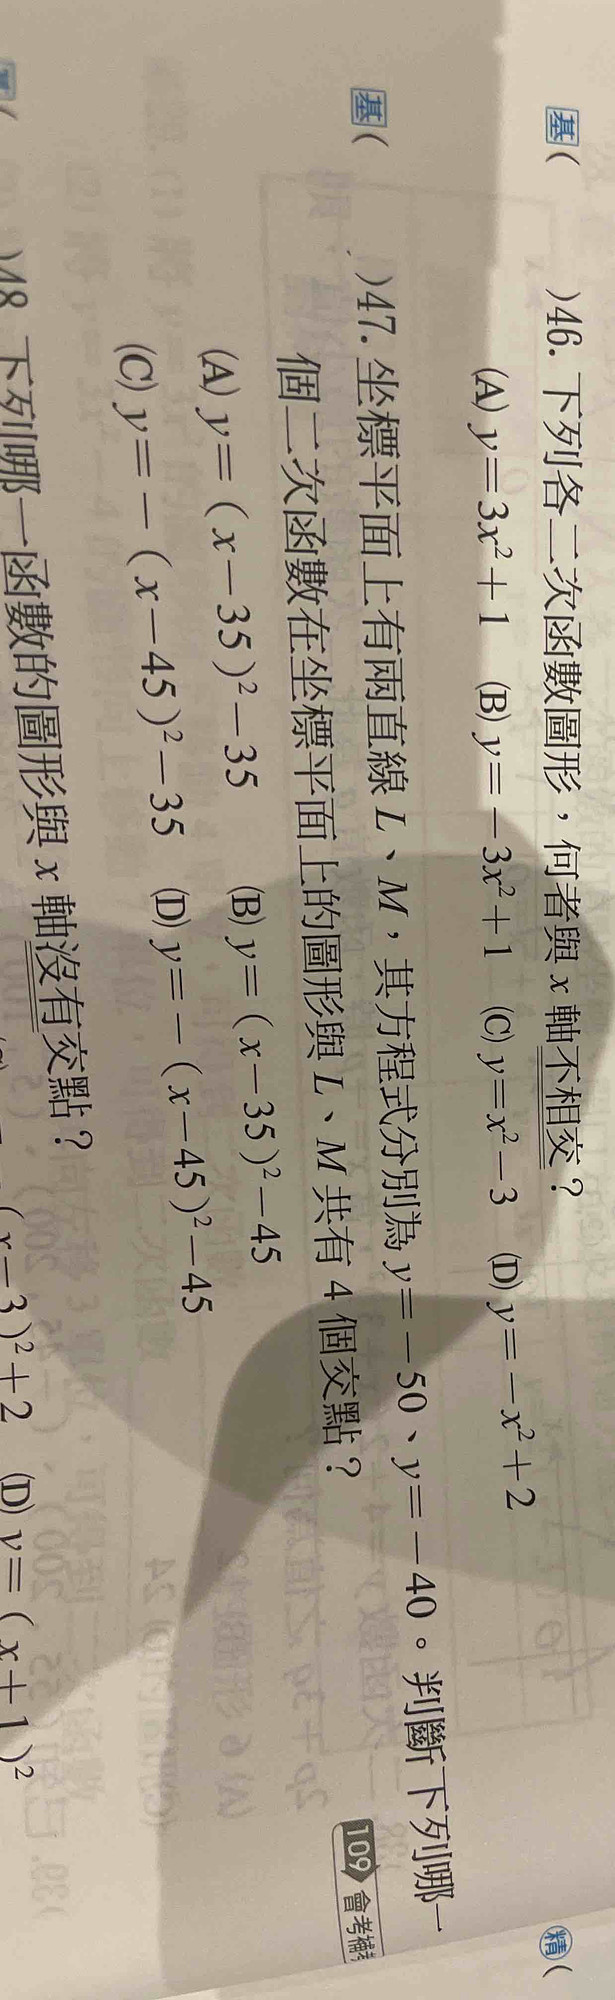 基( )46. 下列各二次函數圖形，何者與 x 軸不相交？
(A) y＝3x²＋1 (B) y＝－3x²＋1 (C) y＝x²－3 (D) y＝－x²＋2
精(
基( )47. 坐標平面上有兩直線 L、M，其方程式分別為 y＝－50、y＝－40。判斷下列哪一
個二次函數在坐標平面上的圖形與 L、M 共有 4 個交點？
109 會考補考
(A) y＝( x－35 )²－35 (B) y＝( x－35 )²－45
(C) y＝－( x－45 )²－35 (D) y＝－( x－45 )²－45
( )48. 下列哪一函數的圖形與 x 軸沒有交點？
( x－3 )²＋2 (D) y＝( x＋1 )²